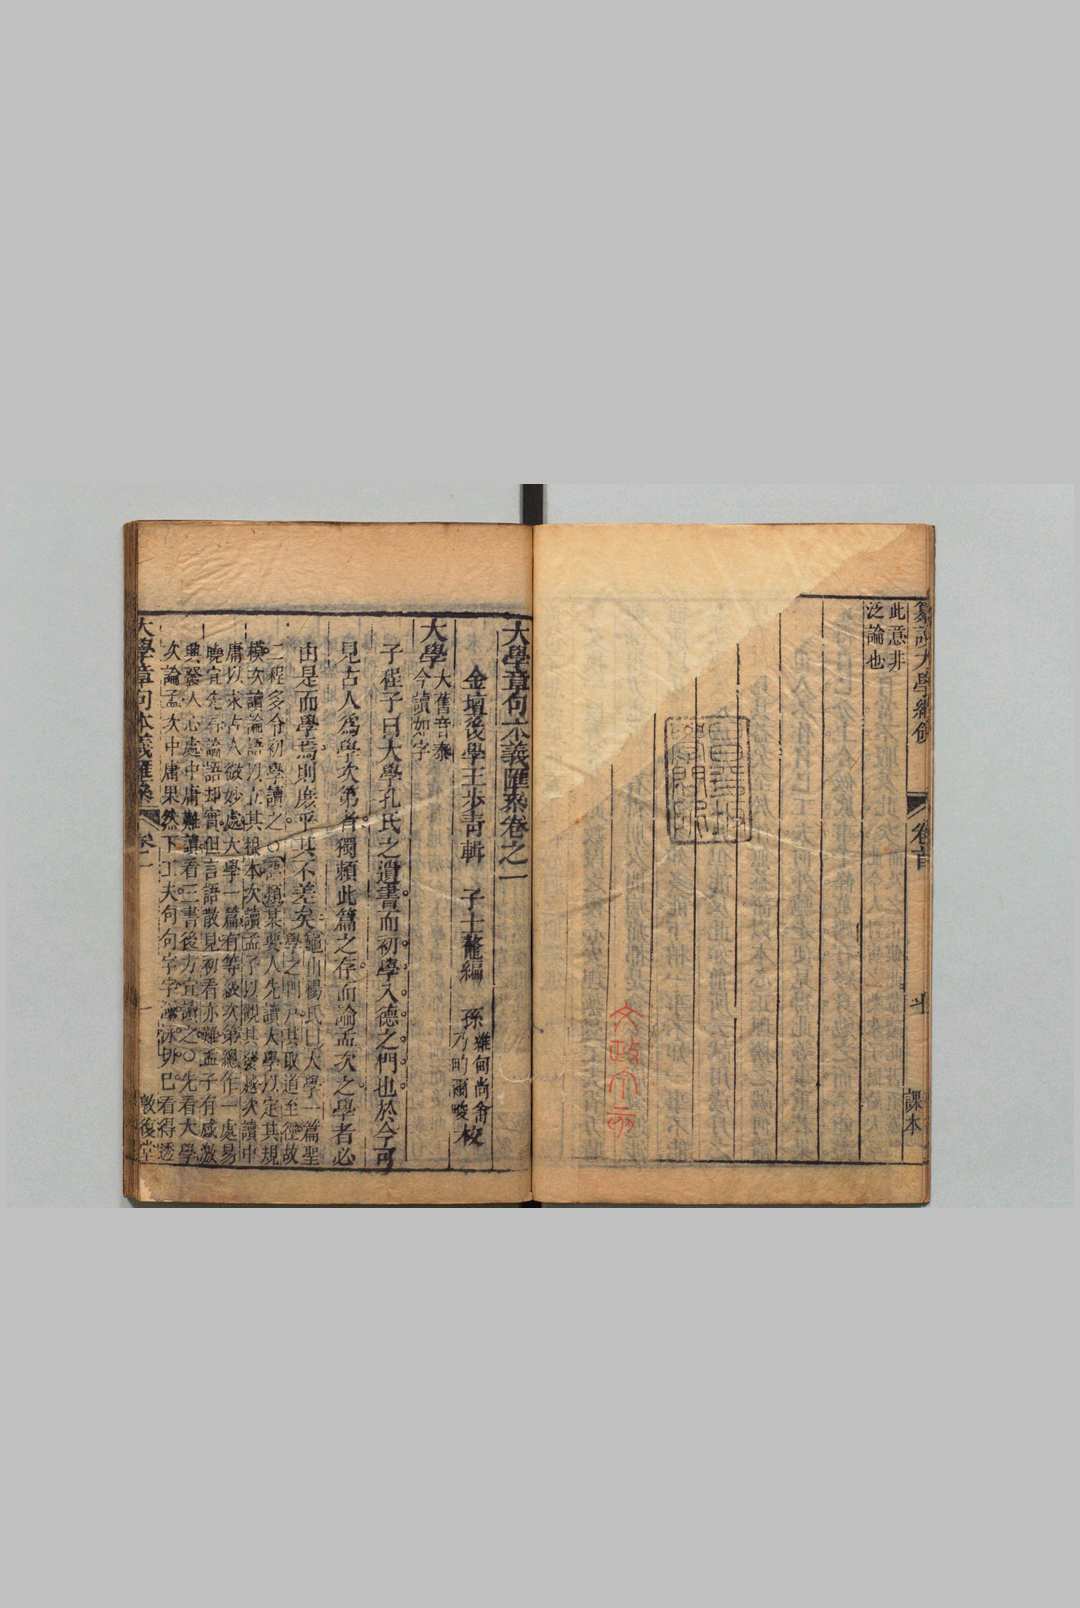 此意非
泛論也
卷首
課本
文政
大學章句本義匯叅卷之一
金壇後學王步青輯 子士鼇編 孫
校
大學
大舊音泰
今讀如字
子程子曰大學孔氏之遺書而初學入德之門也於今可
見古人爲學次第者獨賴此篇之存而論孟次之學者必
由是而學焉則庶乎其不差矣
龜山楊氏曰大學一篇聖
學之門戶其取道至徑故
二程多令初學讀之○語類某要人先讀大學以定其規
模次讀論語以立其根本次讀孟子以觀其發越次讀中
庸以求古人微妙處大學一篇有等級次第總作一處易
曉宜先看論語却實但言語散見初看亦難孟子有感激
興發人心處中庸難讀看三書後方宜讀之○先看大學
次論孟次中庸果然下工夫句句字字涵泳切己看得透
大學章句本義匯叅
卷一
一
敦復堂